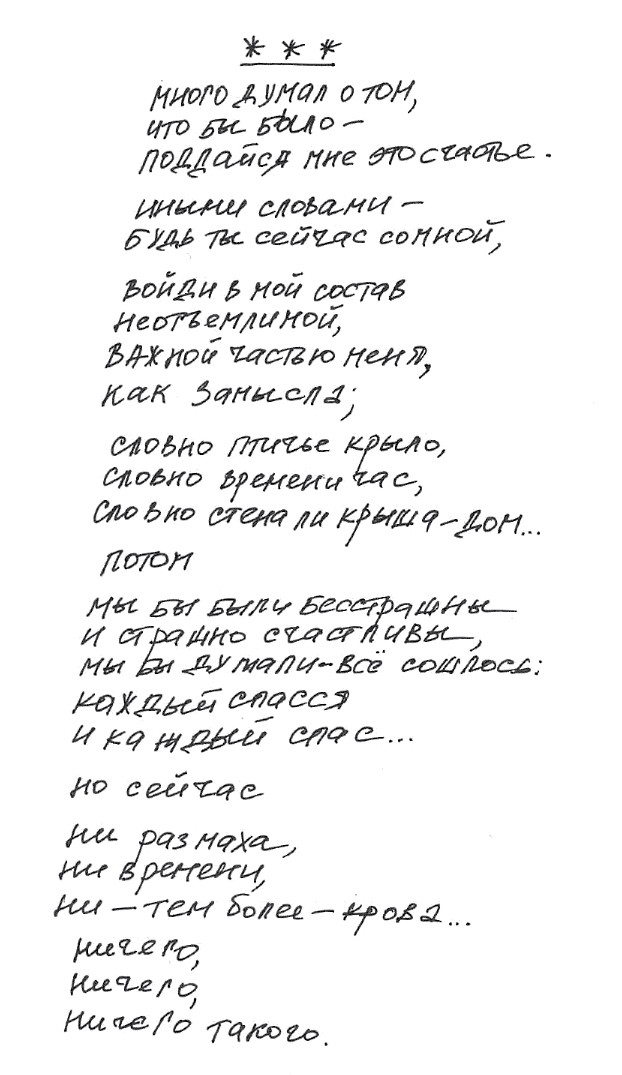 * * *
много думал о том,
что бы было –
поддайся мне это счастье.
иными словами –
будь ты сейчас со мной,
войди в мой состав
неотъемлимой,
важной частью меня,
как замысла;
словно птичье крыло,
словно времени час,
словно стена ли крыша – дом...
потом
мы бы были бесстрашны
и страшно счастливы,
мы бы думали – всё сошлось:
каждый спасся
и каждый спас...
но сейчас
ни размаха,
ни времени,
ни – тем более – крова...
ничего,
ничего,
ничего такого.